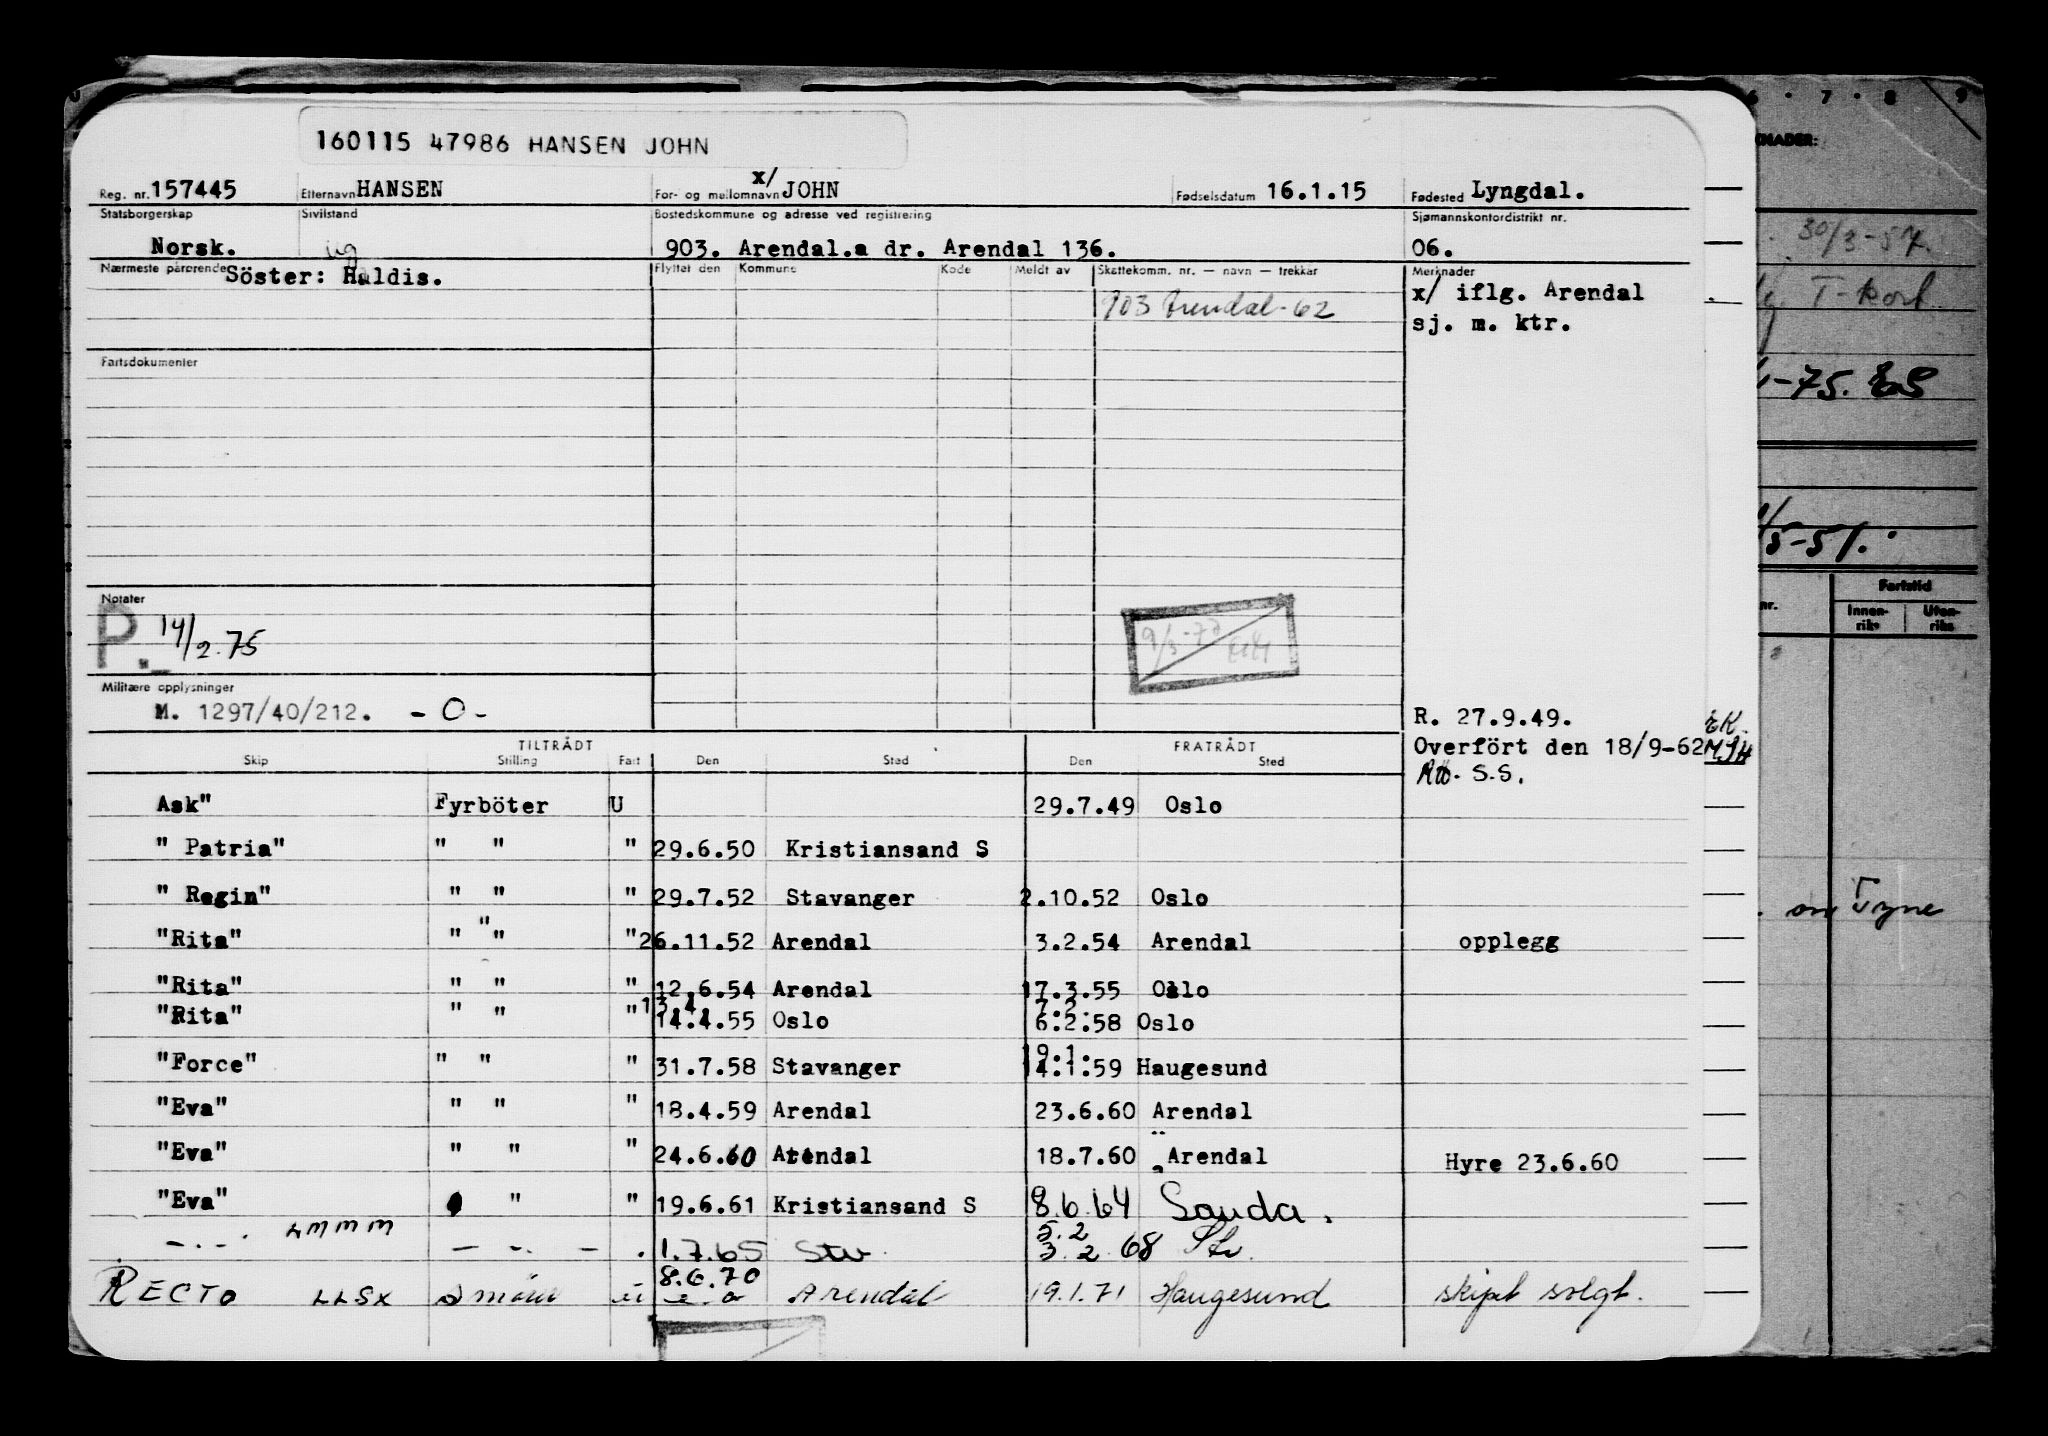 160115 47986 HANSEN JOHN
Reg. nr. 157445 Etternavn HANSEN For- og mellomnavn x/ JOHN Fødselsdatum 16.1.15 Fødested Lyngdal.
Statsborgerskap Sivilstand Bostedskommune og adresse ved registrering Sjømannskontordistrikt nr.
Norsk. ug 903. Arendal.a dr. Arendal 136. 06.
Nærmeste pårørende Söster: Haldis. Flyttet den Kommune Kode Meldt av Skattekomm. nr. — navn — trekkår Merknader
903 Arendal-62 x/ iflg. Arendal
sj. m. ktr.
Fartsdokumenter
Notater
P. 14/2.75
Militære opplysninger
M. 1297/40/212. -O-
R. 27.9.49.
TILTRÅDT FRATRÅDT
Overfört den 18/9-62
Skip Stilling Fart Den Sted Den Sted
S.S.
Ask" Fyrböter U 29.7.49 Oslo
" Patria" " " " 29.6.50 Kristiansand S
" Regin" " " " 29.7.52 Stavanger 2.10.52 Oslo
"Rita" " " " 26.11.52 Arendal 3.2.54 Arendal opplegg
"Rita" " " " 12.6.54 Arendal 17.3.55 Oslo
13.4. 7.2.
"Rita" " " " 14.4.55 Oslo 6.2.58 Oslo
19.1.
"Force" " " " 31.7.58 Stavanger 14.1.59 Haugesund
"Eva" " " " 18.4.59 Arendal 23.6.60 Arendal
"Eva" " " " 24.6.60 Arendal 18.7.60 Arendal Hyre 23.6.60
"Eva" " " 19.6.61 Kristiansand S 8.6.64 Sauda.
LMMM 5.2
-.-. - -. - 1.7.65 Stv 3.2.68 Stv.
8.6.70
RECTO LLSX Smöre Arendal 19.1.71 Haugesund skipet solgt.
6 . 7 . 8 9
KNADER:
30/3-57.
T-kort
-75.
/5-51.
nr. Fartstid
Innen-riks Uten-riks
on Tyne